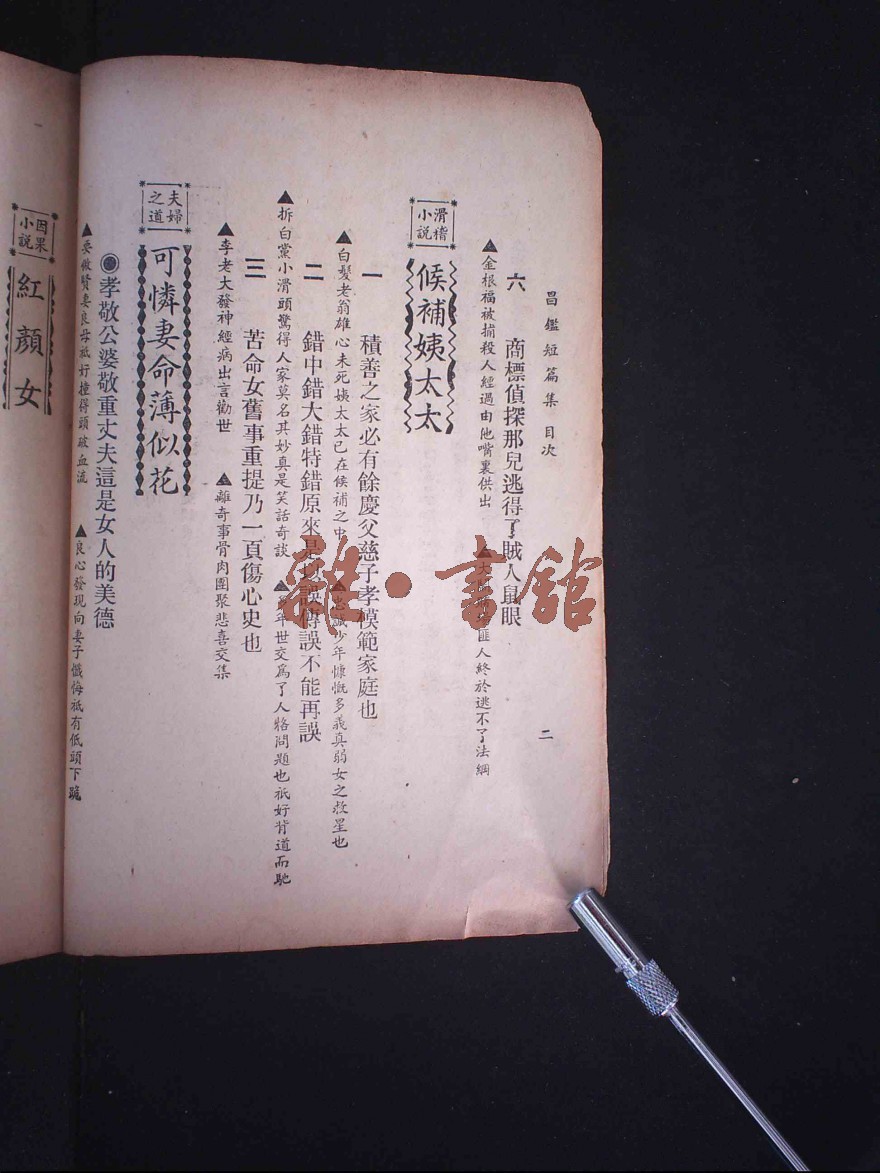 昌鑑短篇集 目次
二
六 商標偵探那兒逃得了賊人鼠眼
▲金根福被捕殺人經過由他嘴裏供出 匪人終於逃不了法網
滑稽小說
候補姨太太
一 積善之家必有餘慶父慈子孝模範家庭也
▲白髮老翁雄心未死姨太太已在候補之中 ▲忠誠少年慷慨多義真弱女之救星也
二 錯中錯大錯特錯原來是以誤傳誤不能再誤
▲拆白黨小滑頭驚得人家莫名其妙真是笑話奇談 ▲ 年世交爲了人格問題也祇好背道而馳
三 苦命女舊事重提乃一頁傷心史也
▲李老大發神經病出言勸世 ▲離奇事骨肉團聚悲喜交集
夫婦之道
可憐妻命薄似花
◉孝敬公婆敬重丈夫這是女人的美德
▲要做賢妻良母祇好撞得頭破血流 ▲良心發現向妻子懺悔祇有低頭下跪
因果小說
紅顏女
雜·書館